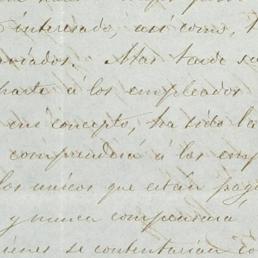 interesado, así como, t
viados. Mas tarde se
parte á los empleados
su concepto, ha sido la
comprenderá á los emp
los unicos que están pag
y nunca compensará
uienes se contentarian co